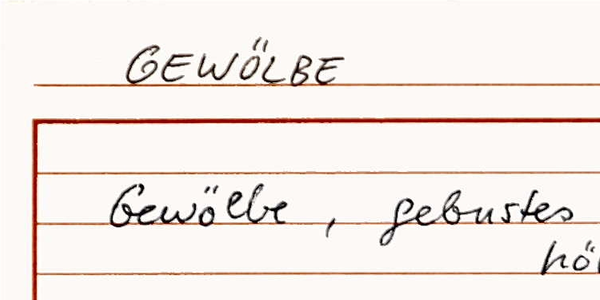 GEWÖLBE
Gewölbe, gebustes
höl